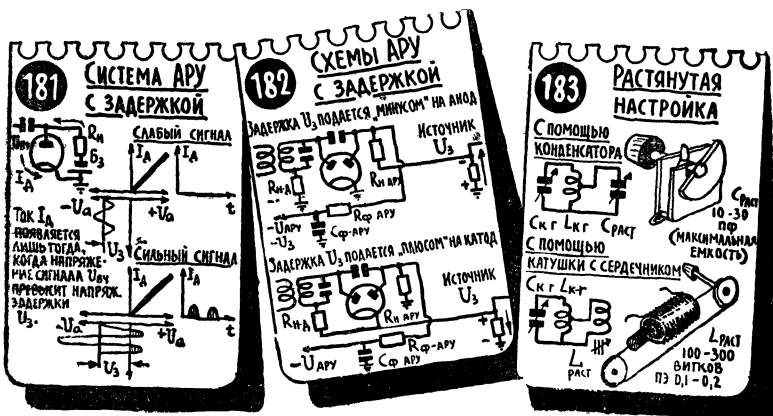 181
СИСТЕМА АРУ
С ЗАДЕРЖКОЙ
Rн
Uвч
Бз
IА
СЛАБЫЙ СИГНАЛ
IА
IА
-Uа
+Uа
t
Uз
ТОК IА
ПОЯВЛЯЕТСЯ
ЛИШЬ ТОГДА,
КОГДА НАПРЯЖЕ-
НИЕ СИГНАЛА Uвч
ПРЕВЫСИТ НАПРЯЖ.
ЗАДЕРЖКИ
Uз.
СИЛЬНЫЙ СИГНАЛ
IА
IА
-Uа
+Uа
t
Uз
182
СХЕМЫ АРУ
С ЗАДЕРЖКОЙ
ЗАДЕРЖКА Uз ПОДАЕТСЯ „МИНУСОМ" НА АНОД
ИСТОЧНИК
Uз
Rн-д
Rн АРУ
-UАРУ
-Uз
Rф АРУ
Cф-АРУ
ЗАДЕРЖКА Uз ПОДАЕТСЯ „ПЛЮСОМ" НА КАТОД
ИСТОЧНИК
Uз
Rн-д
Rн АРУ
-UАРУ
Cф АРУ
Rф-АРУ
183
РАСТЯНУТАЯ
НАСТРОЙКА
С ПОМОЩЬЮ
КОНДЕНСАТОРА
Cкг Lкг CРАСТ
CРАСТ
10-30
пф
(МАКСИМАЛЬНАЯ
ЕМКОСТЬ)
С ПОМОЩЬЮ
КАТУШКИ С СЕРДЕЧНИКОМ
Cкг Lк-г
LРАСТ
LРАСТ
100-300
ВИТКОВ
ПЭ 0,1-0,2